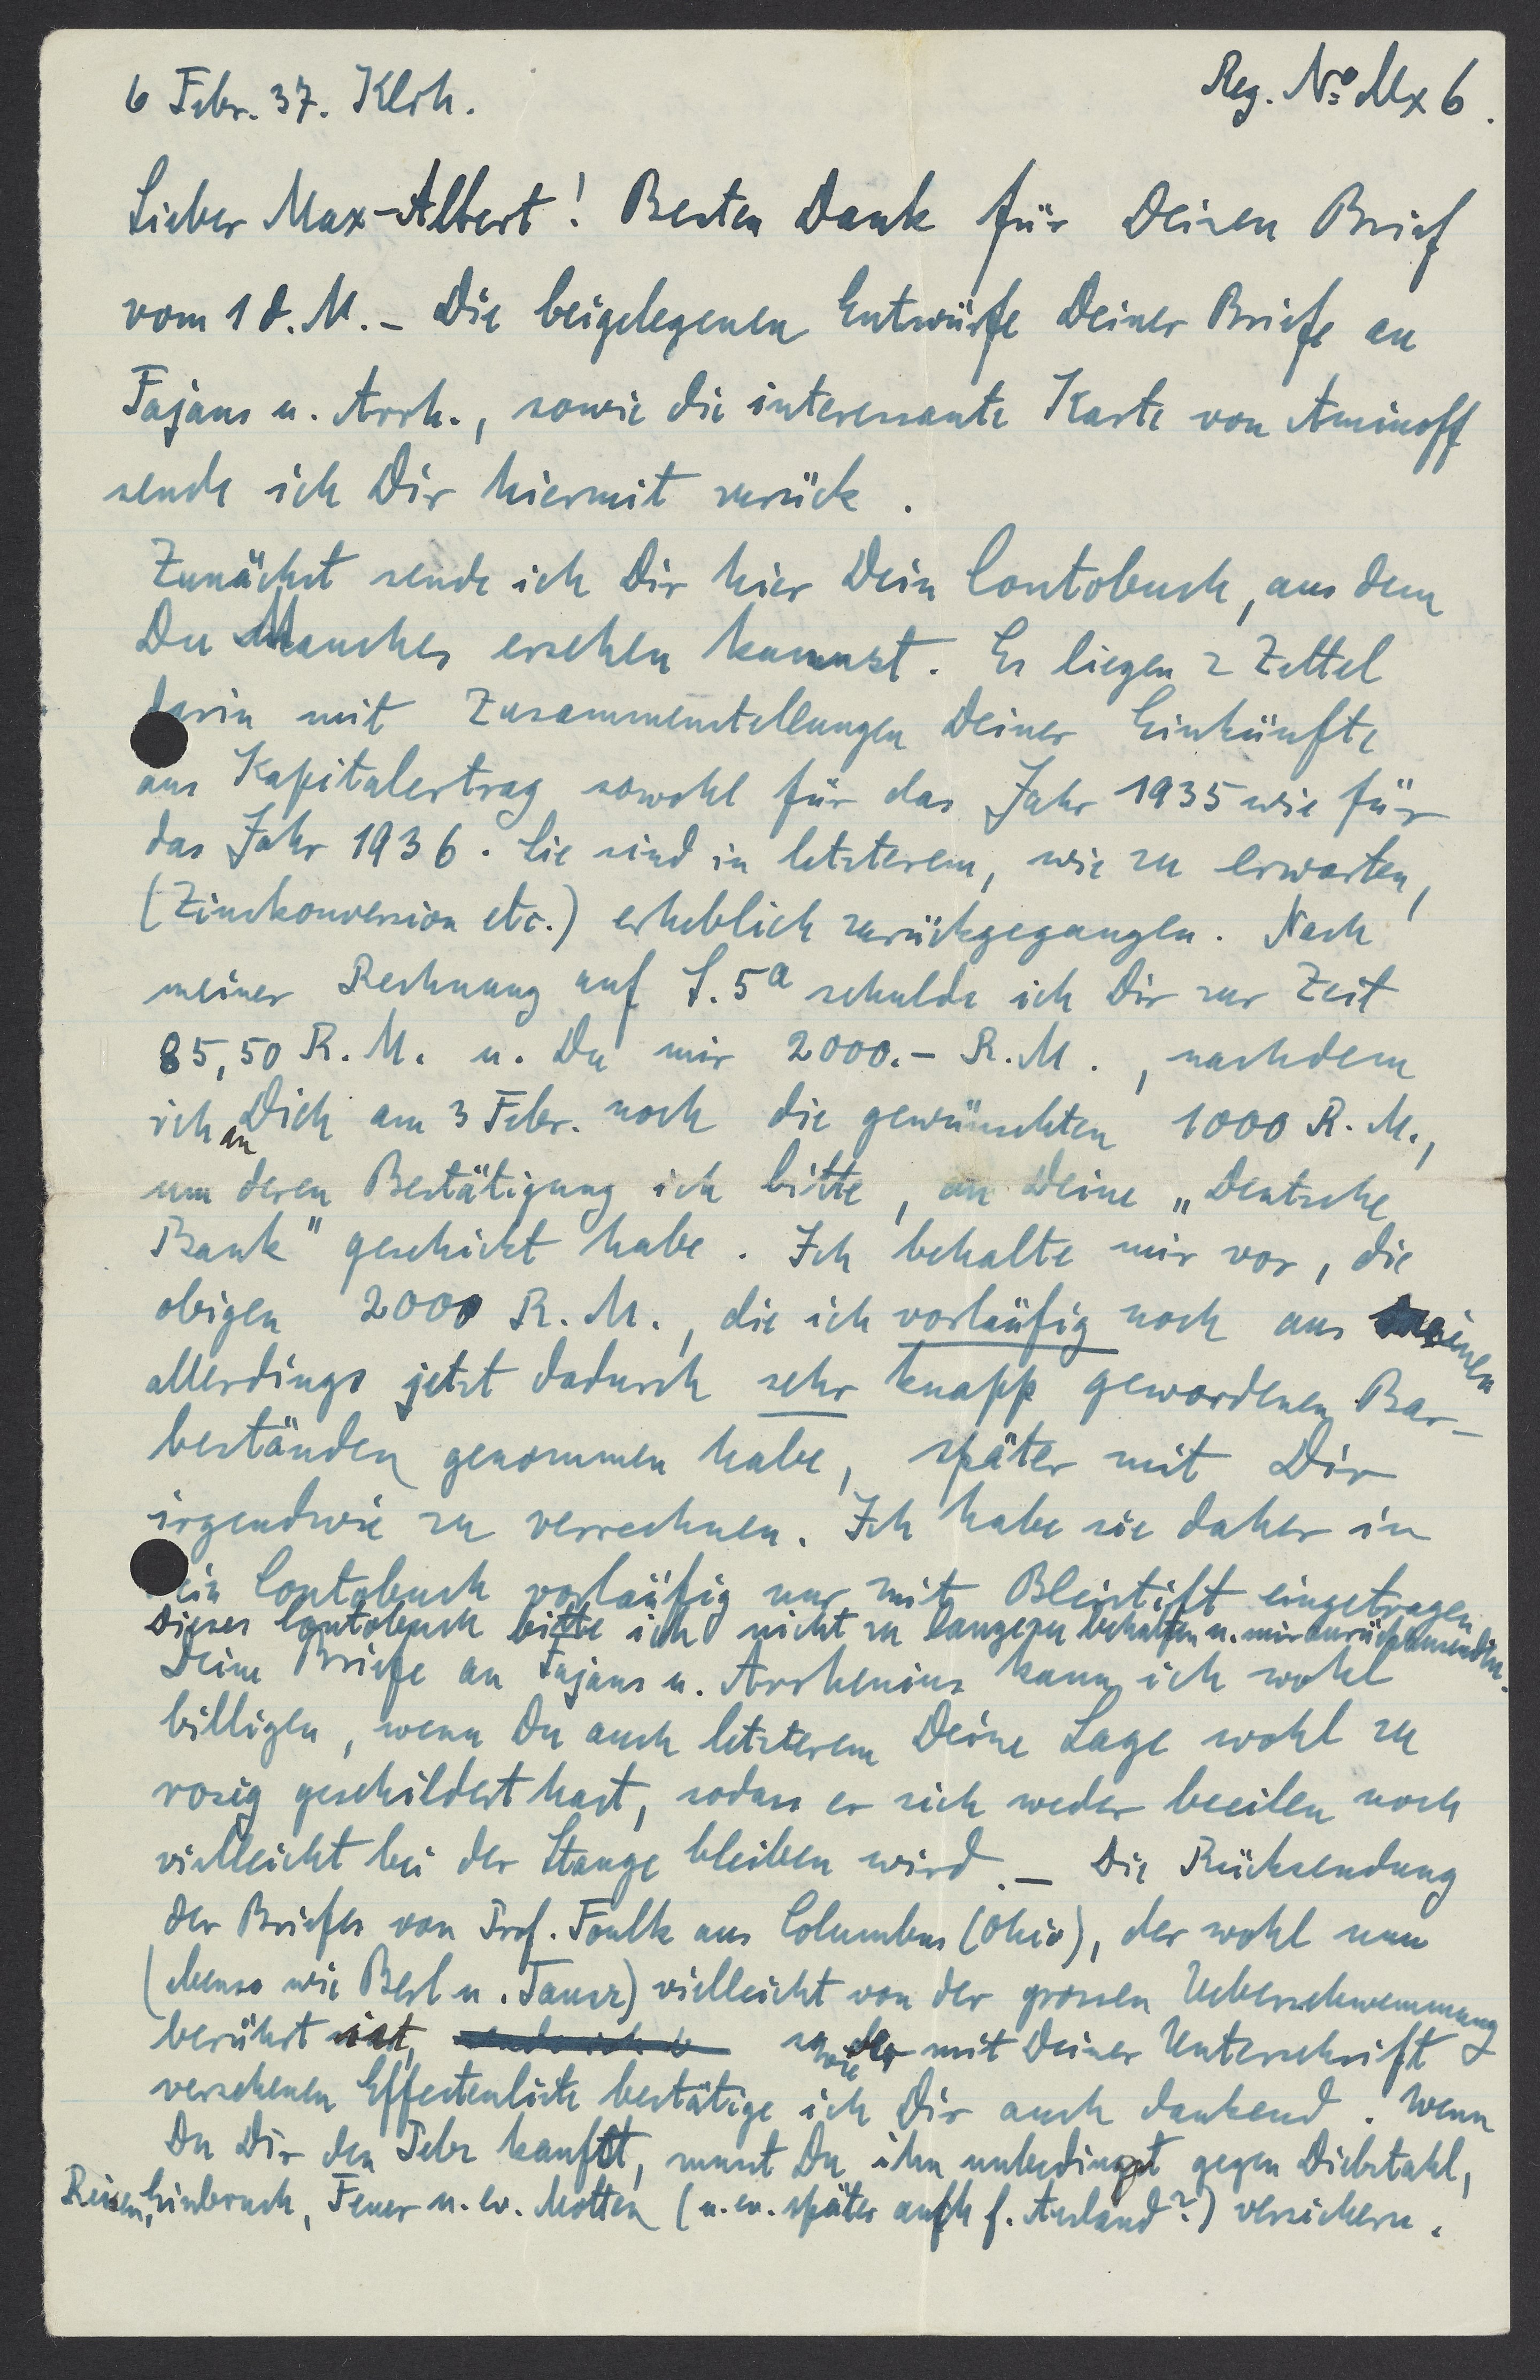 6 Febr. 37. Klrh.
Reg. No Mx 6.
Lieber Max-Albert! Besten Dank für Deinen Brief
vom 1 d. M. – Die beigelegenen Entwürfe Deiner Briefe an
Fajans u. Arrh., sowie die interessante Karte von Aminoff
sende ich Dir hiermit zurück.
Zunächst sende ich Dir hier Dein Contobuch, aus dem
Du Manches ersehen kannst. Es liegen 2 Zettel
darin mit Zusammenstellungen Deiner Einkünfte
aus Kapitalertrag sowohl für das Jahr 1935 wie für
das Jahr 1936. Sie sind in letzterem, wie zu erwarten,
(Zinskonversion etc.) erheblich zurückgegangen. Nach
meiner Rechnung auf S. 5a schulde ich Dir zur Zeit
85,50 R. M. u. Du mir 2000.– R. M., nachdem
ich an Dich am 3 Febr. noch die gewünschten 1000 R. M.,
um deren Bestätigung ich bitte, an Deine „Deutsche
Bank" geschickt habe. Ich behalte mir vor, die
obigen 2000 R. M., die ich vorläufig noch aus meinen
allerdings jetzt dadurch sehr knapp gewordenen Bar-
beständen genommen habe, später mit Dir
irgendwie zu verrechnen. Ich habe sie daher in
Dein Contobuch vorläufig nur mit Bleistift eingetragen
Dieses Contobuch bitte ich nicht zu lange zu behalten u. mir zurückzusenden.
Deine Briefe an Fajans u. Arrhenius kann ich wohl
billigen, wenn Du auch letzterem Deine Lage wohl zu
rosig geschildert hast, sodass er sich weder beeilen noch
vielleicht bei der Stange bleiben wird. – Die Rücksendung
des Briefes von Prof. Foulk aus Columbus (Ohio), der wohl nun
(ebenso wie Berl u. Tausz) vielleicht von der grossen Ueberschwemmung
berührt ist, sowie der mit Deiner Unterschrift
versehenen Effectenliste bestätige ich Dir auch dankend. Wenn
Du Dir den Pelz kaufst, musst Du ihn unbedingt gegen Diebstahl,
Reisen, Einbruch, Feuer u. ev. Motten (u. ev. später auch f. Ausland?) versichern.